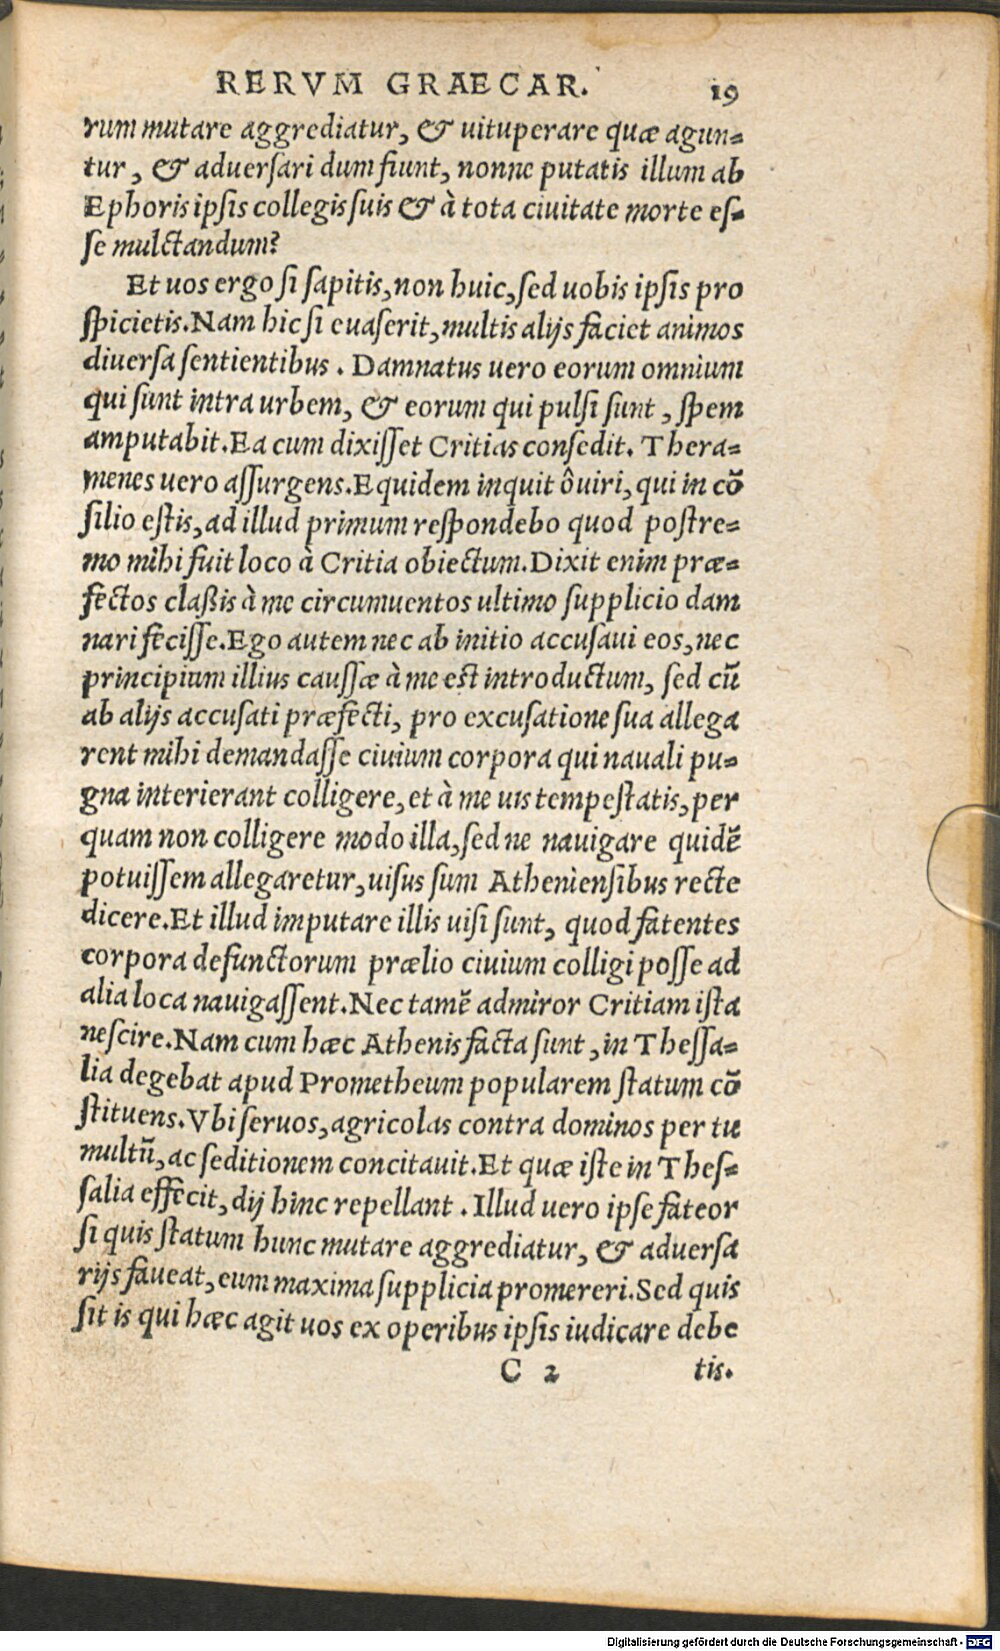 RERVM GRAECAR. 19
rum mutare aggrediatur, & uituperare quæ agun-
tur, & aduersari dum fiunt, nonne putatis illum ab
Ephoris ipsis collegis suis & à tota ciuitate morte es-
se mulctandum?
Et uos ergo si sapitis, non huic, sed uobis ipsis pro
spicietis. Nam hic si euaserit, multis alijs faciet animos
diuersa sentientibus. Damnatus uero eorum omnium
qui sunt intra urbem, & eorum qui pulsi sunt, spem
amputabit. Ea cum dixisset Critias consedit. Thera-
menes uero assurgens. Equidem inquit ô uiri, qui in cō
silio estis, ad illud primum respondebo quod postre-
mo mihi fuit loco à Critia obiectum. Dixit enim præ-
fectos claßis à me circumuentos ultimo supplicio dam
nari fecisse. Ego autem nec ab initio accusaui eos, nec
principium illius caussæ à me est introductum, sed cū
ab alijs accusati præfecti, pro excusatione sua allega
rent mihi demandasse ciuium corpora qui nauali pu-
gna interierant colligere, et à me uis tempestatis, per
quam non colligere modo illa, sed ne nauigare quidē
potuissem allegaretur, uisus sum Atheniensibus recte
dicere. Et illud imputare illis uisi sunt, quod fatentes
corpora defunctorum prælio ciuium colligi posse ad
alia loca nauigassent. Nec tamē admiror Critiam ista
nescire. Nam cum hæc Athenis facta sunt, in Thessa-
lia degebat apud Prometheum popularem statum cō
stituens. Vbi seruos, agricolas contra dominos per tu
multū, ac seditionem concitauit. Et quæ iste in Thes-
salia effecit, dij hinc repellant. Illud uero ipse fateor
si quis statum hunc mutare aggrediatur, & aduersa
rijs faueat, eum maxima supplicia promereri. Sed quis
sit is qui hæc agit uos ex operibus ipsis iudicare debe
C 2 tis.
Digitalisierung gefördert durch die Deutsche Forschungsgemeinschaft - DFG